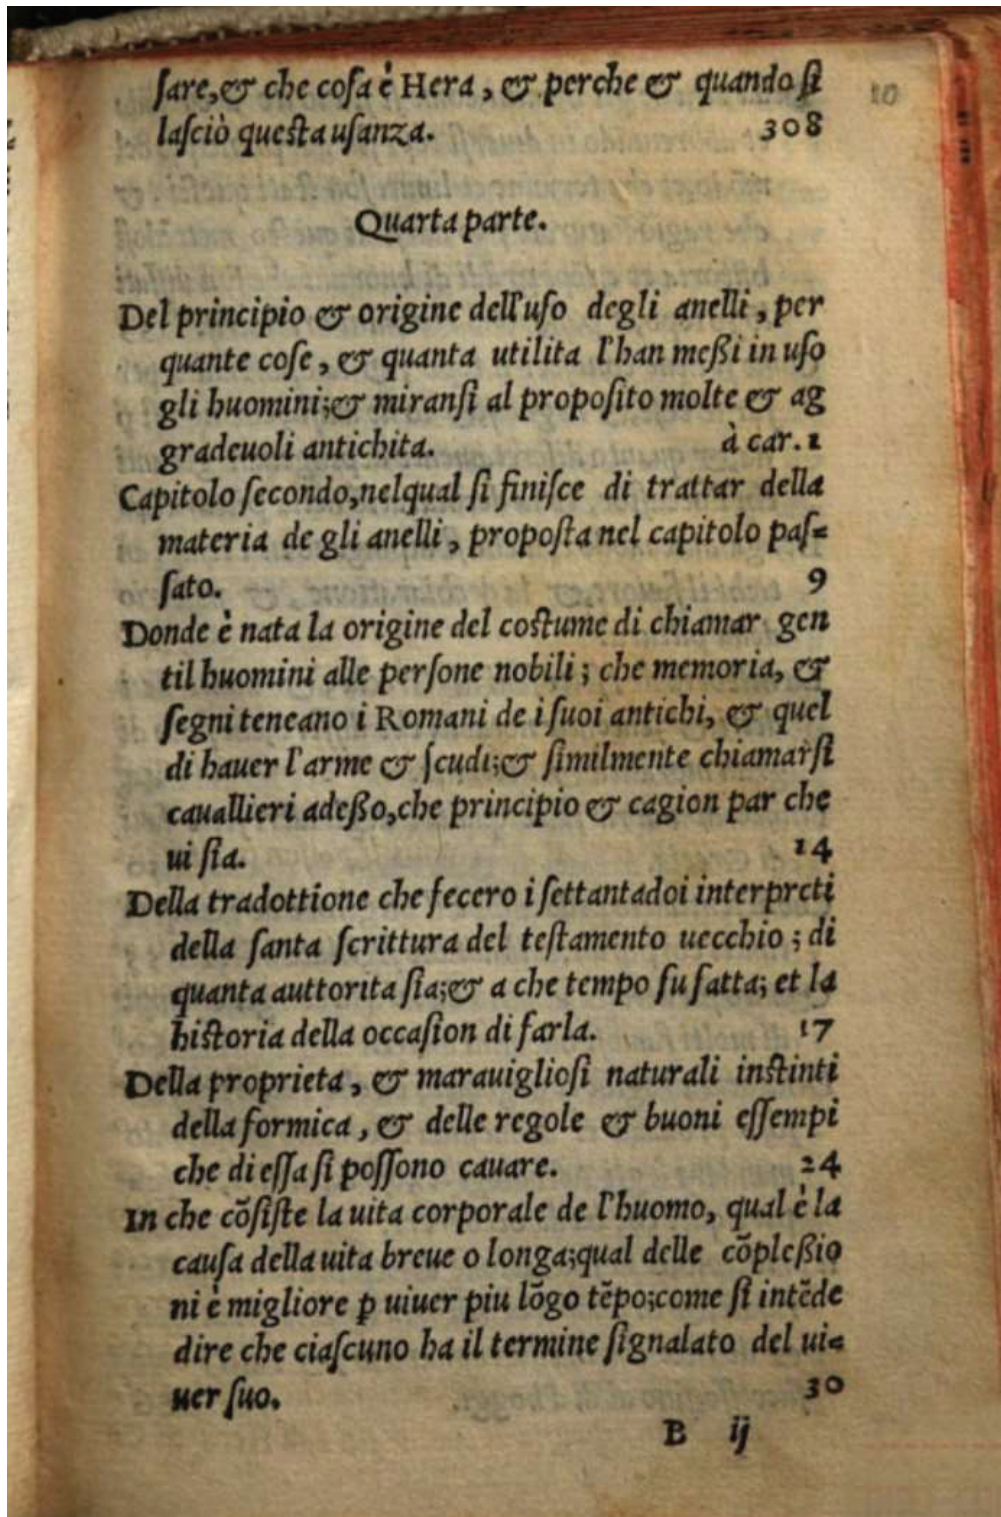 sare,& che cosa è Hera, & perche & quando si
lasciò questa usanza. 308
10
Quarta parte.
Del principio & origine dell'uso degli anelli, per
quante cose, & quanta utilita l'han meßi in uso
gli huomini;& miransi al proposito molte & ag
gradeuoli antichita. à car. 1
Capitolo secondo,nelqual si finisce di trattar della
materia de gli anelli, proposta nel capitolo pas=
sato. 9
Donde è nata la origine del costume di chiamar gen
til huomini alle persone nobili; che memoria, &
segni teneano i Romani de i suoi antichi, & quel
di hauer l'arme & scudi;& similmente chiamarsi
cauallieri adeßo,che principio & cagion par che
ui sia. 14
Della tradottione che fecero i settantadoi interpreti
della santa scrittura del testamento uecchio; di
quanta auttorita sia;& a che tempo fu fatta; et la
historia della occasion di farla. 17
Della proprieta, & marauigliosi naturali instinti
della formica, & delle regole & buoni essempi
che di essa si possono cauare. 24
In che cõsiste la uita corporale de l'huomo, qual è la
causa della uita breue o longa;qual delle cõpleßio
ni è migliore p uiuer piu lõgo tẽpo;come si intẽde
dire che ciascuno ha il termine signalato del ui=
uer suo. 30
B ij